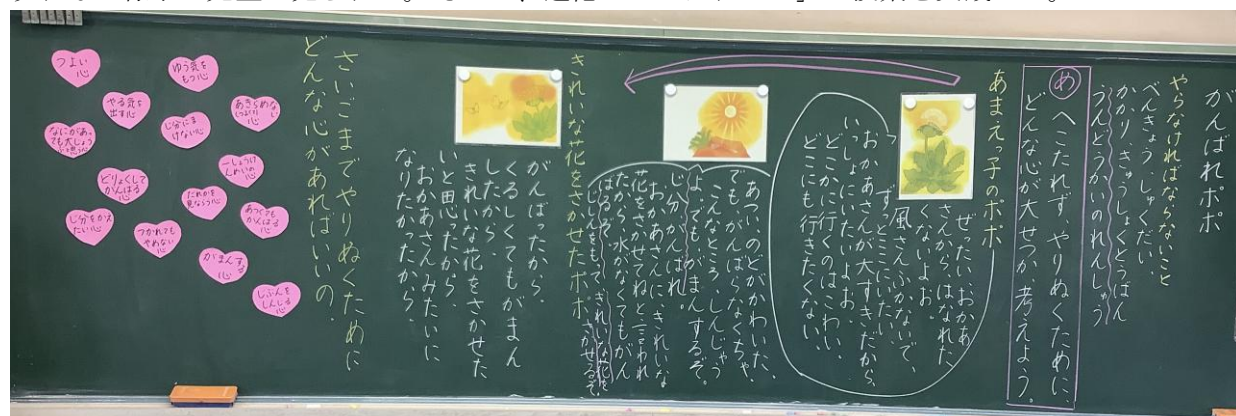 がんばれポポ
やらなければならないこと
べんきょう、しゅくだい、
かかり、きゅうしょくとうばん
うんどうかいのれんしゅう
め へこたれず、やりぬくために、
どんな心が大せつか考えよう。
あまえっ子のポポ
ぜったいおかあ
さんからはなれた
くないよお。
風さんふかないで、
ずっとここにいたい、
おかあさんが大すきだから、
いっしょにいたいよお。
どこかに行くのはこわい、
どこにも行きたくない、
あつい、のどがかわいた、
でも、がんばらなくちゃ。
こんなところ、しんじゃう
よ、でも、がまんするぞ。
じ分、がんばれ。
おかあさんに、きれいな
花をさかせてねと言われ
たから、水がなくてもがん
ばるぞ。
じしんをもって、きれいな花を、
さかせるぞ。
きれいな花をさかせたポポ
がんばったから。
くるしくてもがまん
したから。
きれいな花をさかせた
いと思ったから。
おかあさんみたいに
なりたかったから。
さいごまでやりぬくために
どんな心があればいいの。
つよい
心
ゆう気を
もつ心
やる気を
出す心
あきらめない
心
じ分にま
けない心
なにがあっ
ても大じょう
ぶと思う心
一しょうけ
んめいの
心
どりょくして
がんばる
心
だれかを
見ならう心
あつくても
がんばる
心
じ分をかえ
たい心
つかれても
やめない
心
がまんする
心
じぶんを
しんじる
心